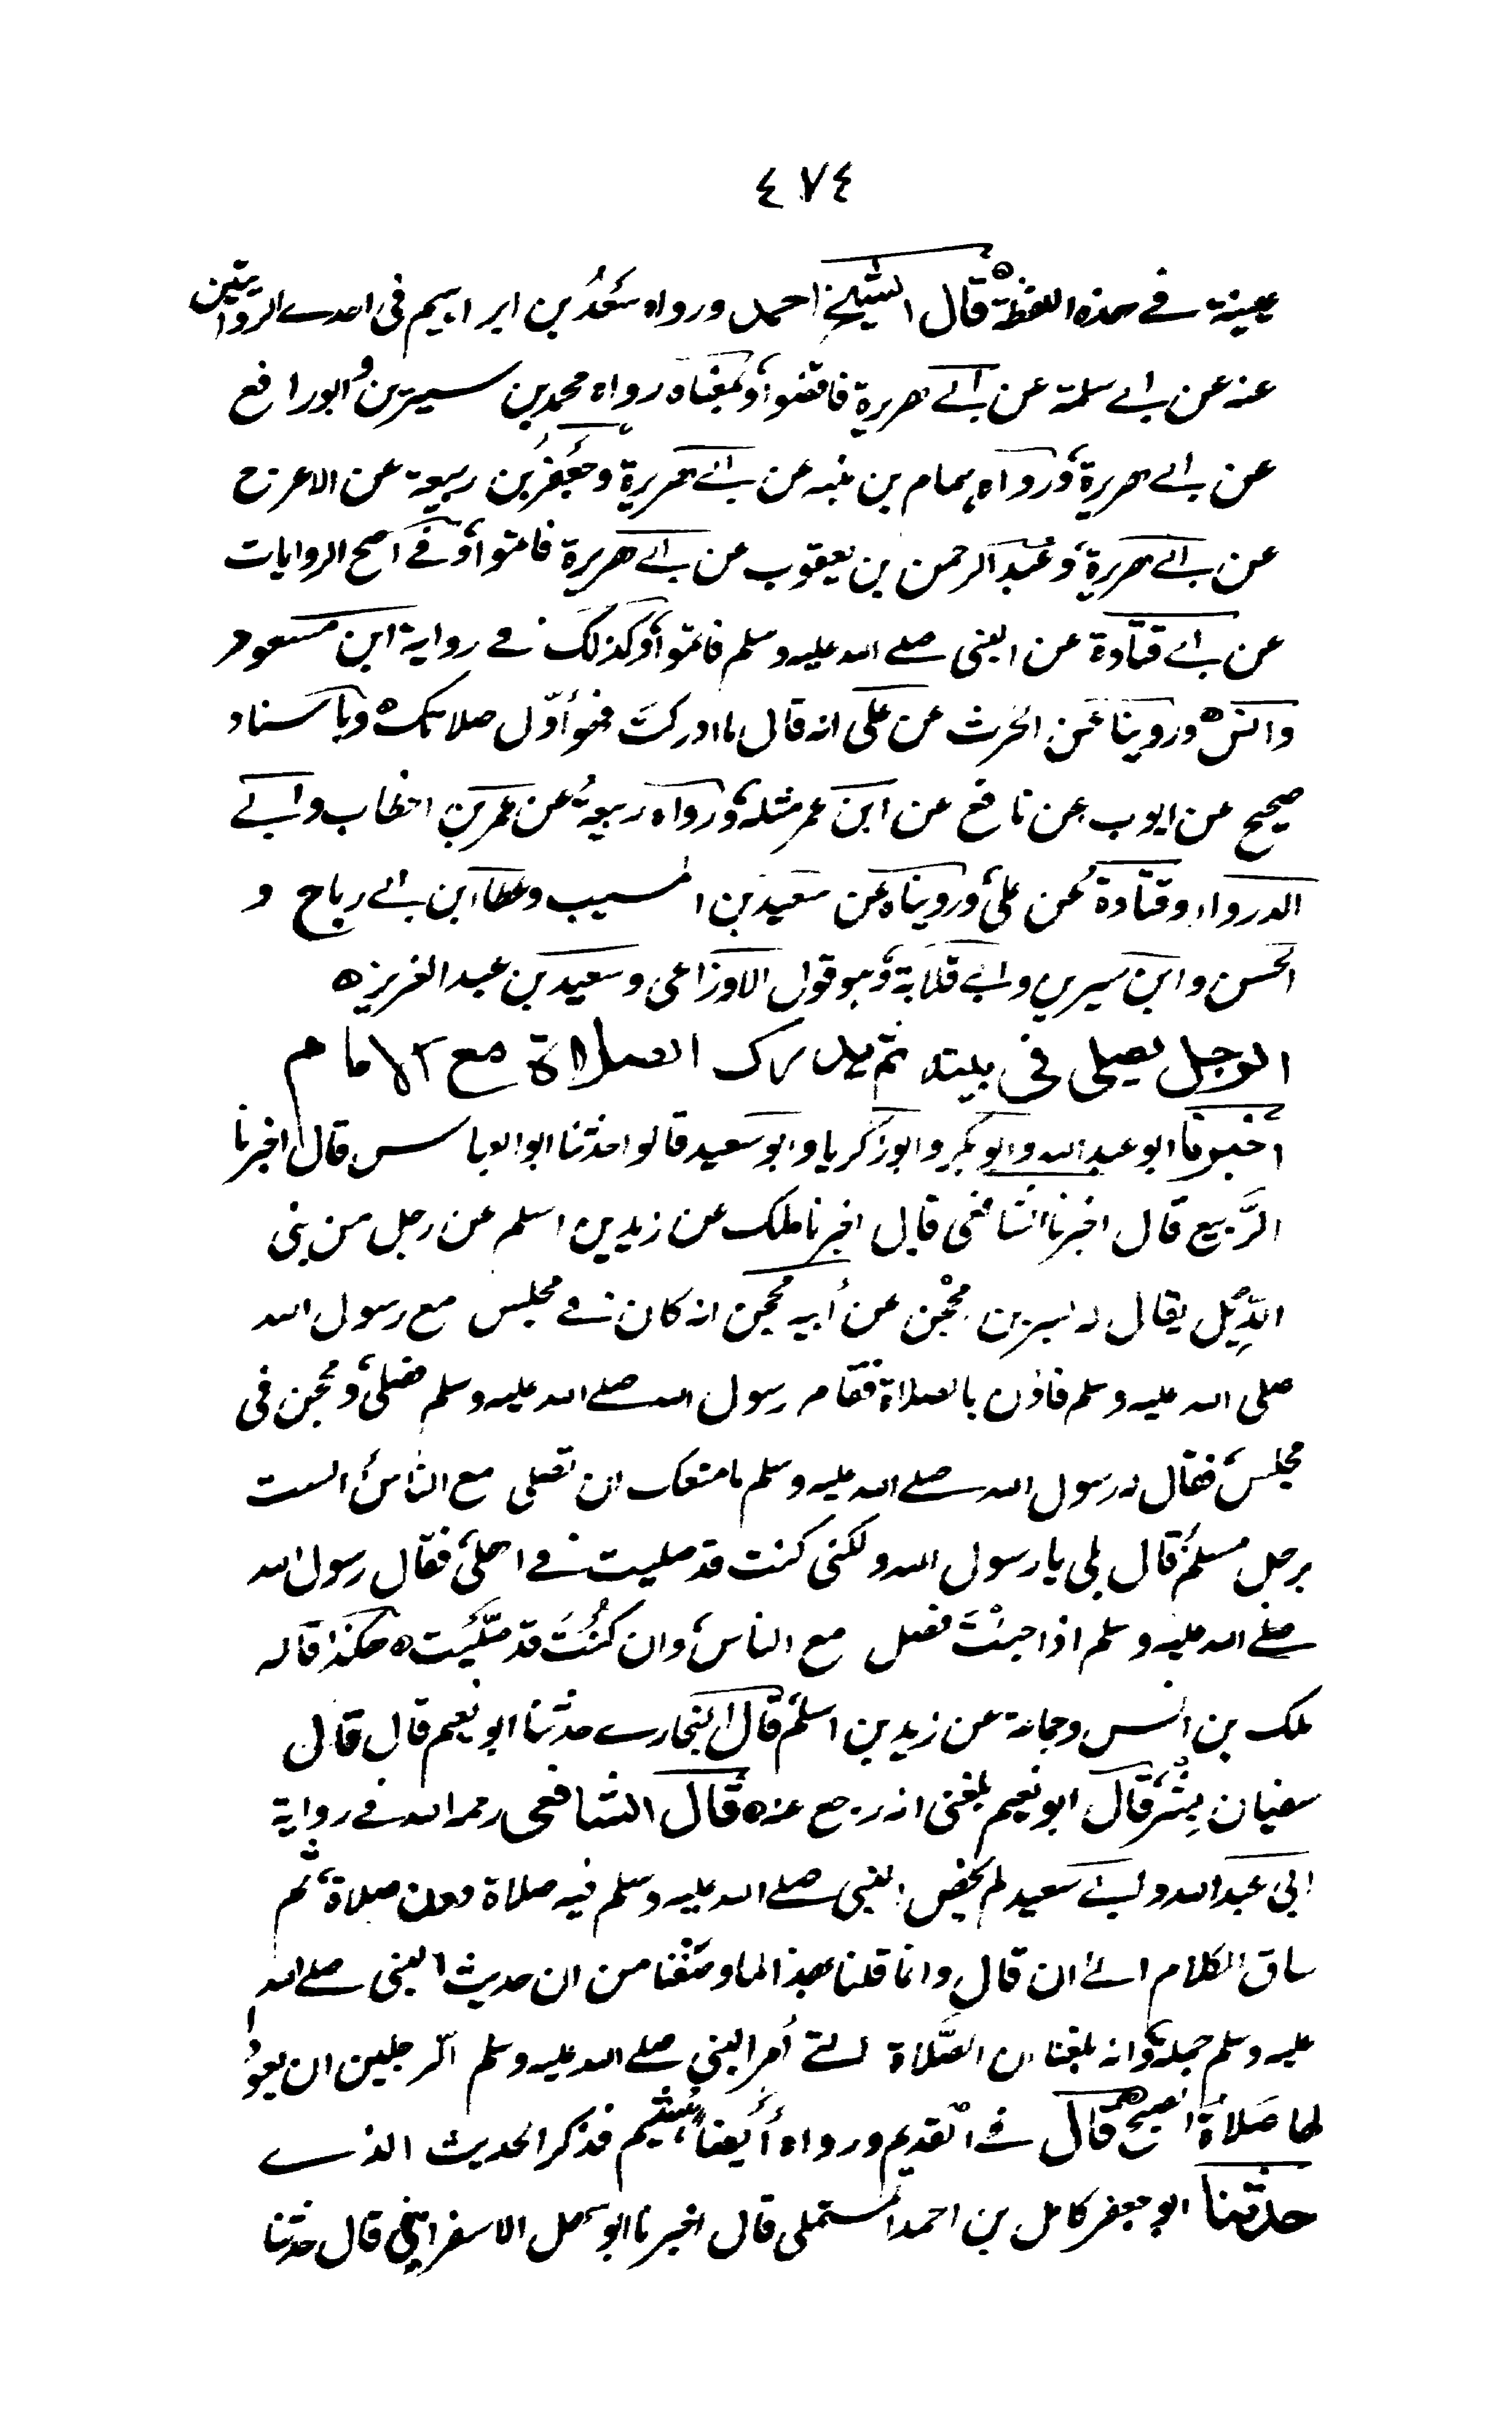 ٤٧٤
عيينة في هذه اللفظة ه قال الشيخ احمد ورواه سَعدُ بن ابراهيم في احدى الروايتين
عنه عن ابي سلمة عن ابي هريرة فاقضوا، وبمعناه رواه محمد بن سيرين وابو رافع
عن ابي هريرة، ورواه همام بن منبه عن ابي هريرة، وجَعفرُ بن ربيعة عن الاعرج
عن ابي هريرة، وعَبد الرحمن بن يعقوب عن ابي هريرة فاتموا، وفي اصح الروايات
عن ابي قتادة عن النبي صلى الله عليه وسلم فاتموا، وكذلك في رواية ابن مسعود
وانس ه وروينا عن الحرث عن على انه قال ما ادركتَ فهو أوّل صلاتك ه وباسناد
صحيح عن ايوب عن نافع عن ابن عمر مثله، ورواه ربيعةُ عن عمر بن الخطاب وابي
الدرداء وقتادة عن على، ورويناه عن سعيد بن المسيب وعطاء بن ابي رباح و
الحسن وابن سيرين وابي قلابة، وهو قول الاوزاعى وسعيد بن عبد العزيز ه
الرجل يصلى فى بيته ثم يدرك الصلاة مع الامام
أخبرنا ابو عبد الله وابو بكر وابو زكريا وابو سعيد قالوا حدثنا ابو العباس قال اخبرنا
الرَّبيع قال اخبرنا الشافعى قال اخبرنا ملك عن زيد بن اسلم عن رجل من بنى
الدِّيل يقال له بسر بن محجن عن أبيه محجن انه كان في مجلس مع رسول الله
صلى الله عليه وسلم فاذن بالصلاة فقام رسول الله صلى الله عليه وسلم فصلى، ومحجن فى
مجلسه، فقال له رسول الله صلى الله عليه وسلم ما منعك ان تصلى مع الناس، الست
برجل مسلم، قال بلى يا رسول الله ولكنى كنت قد صليت في اهلى، فقال رسول الله
صلى الله عليه وسلم اذا جئتَ فصل مع الناس، وان كُنتَ قد صَلّيت ه هكذا قاله
ملك بن انس وجماعة عن زيد بن اسلم، قال البخارى حدثنا ابو نعيم قال قال
سفيان بِشر، قال ابو نعيم بلغنى انه رجع عنه ه قال الشافعى رحمه الله في رواية
ابى عبد الله وابي سعيد لم يخص النبى صلى الله عليه وسلم فيه صلاة دون صلاة، ثم
ساق الكلام الى ان قال وانما قلنا بهذا لما وصَفنا من ان حديث النبى صلى الله
عليه وسلم جملة، وانه بلغنا ان الصَّلاة التي أمر النبى صلى الله عليه وسلم الرجلين ان يعودا
لها صَلاة الصبح ه قال في القديم ورواه أيضاً هُشيم فذكر الحديث الذى
حدثنا ابو جعفر كامل بن احمد المستملى قال اخبرنا ابو سهل الاسفراينى قال حدثنا